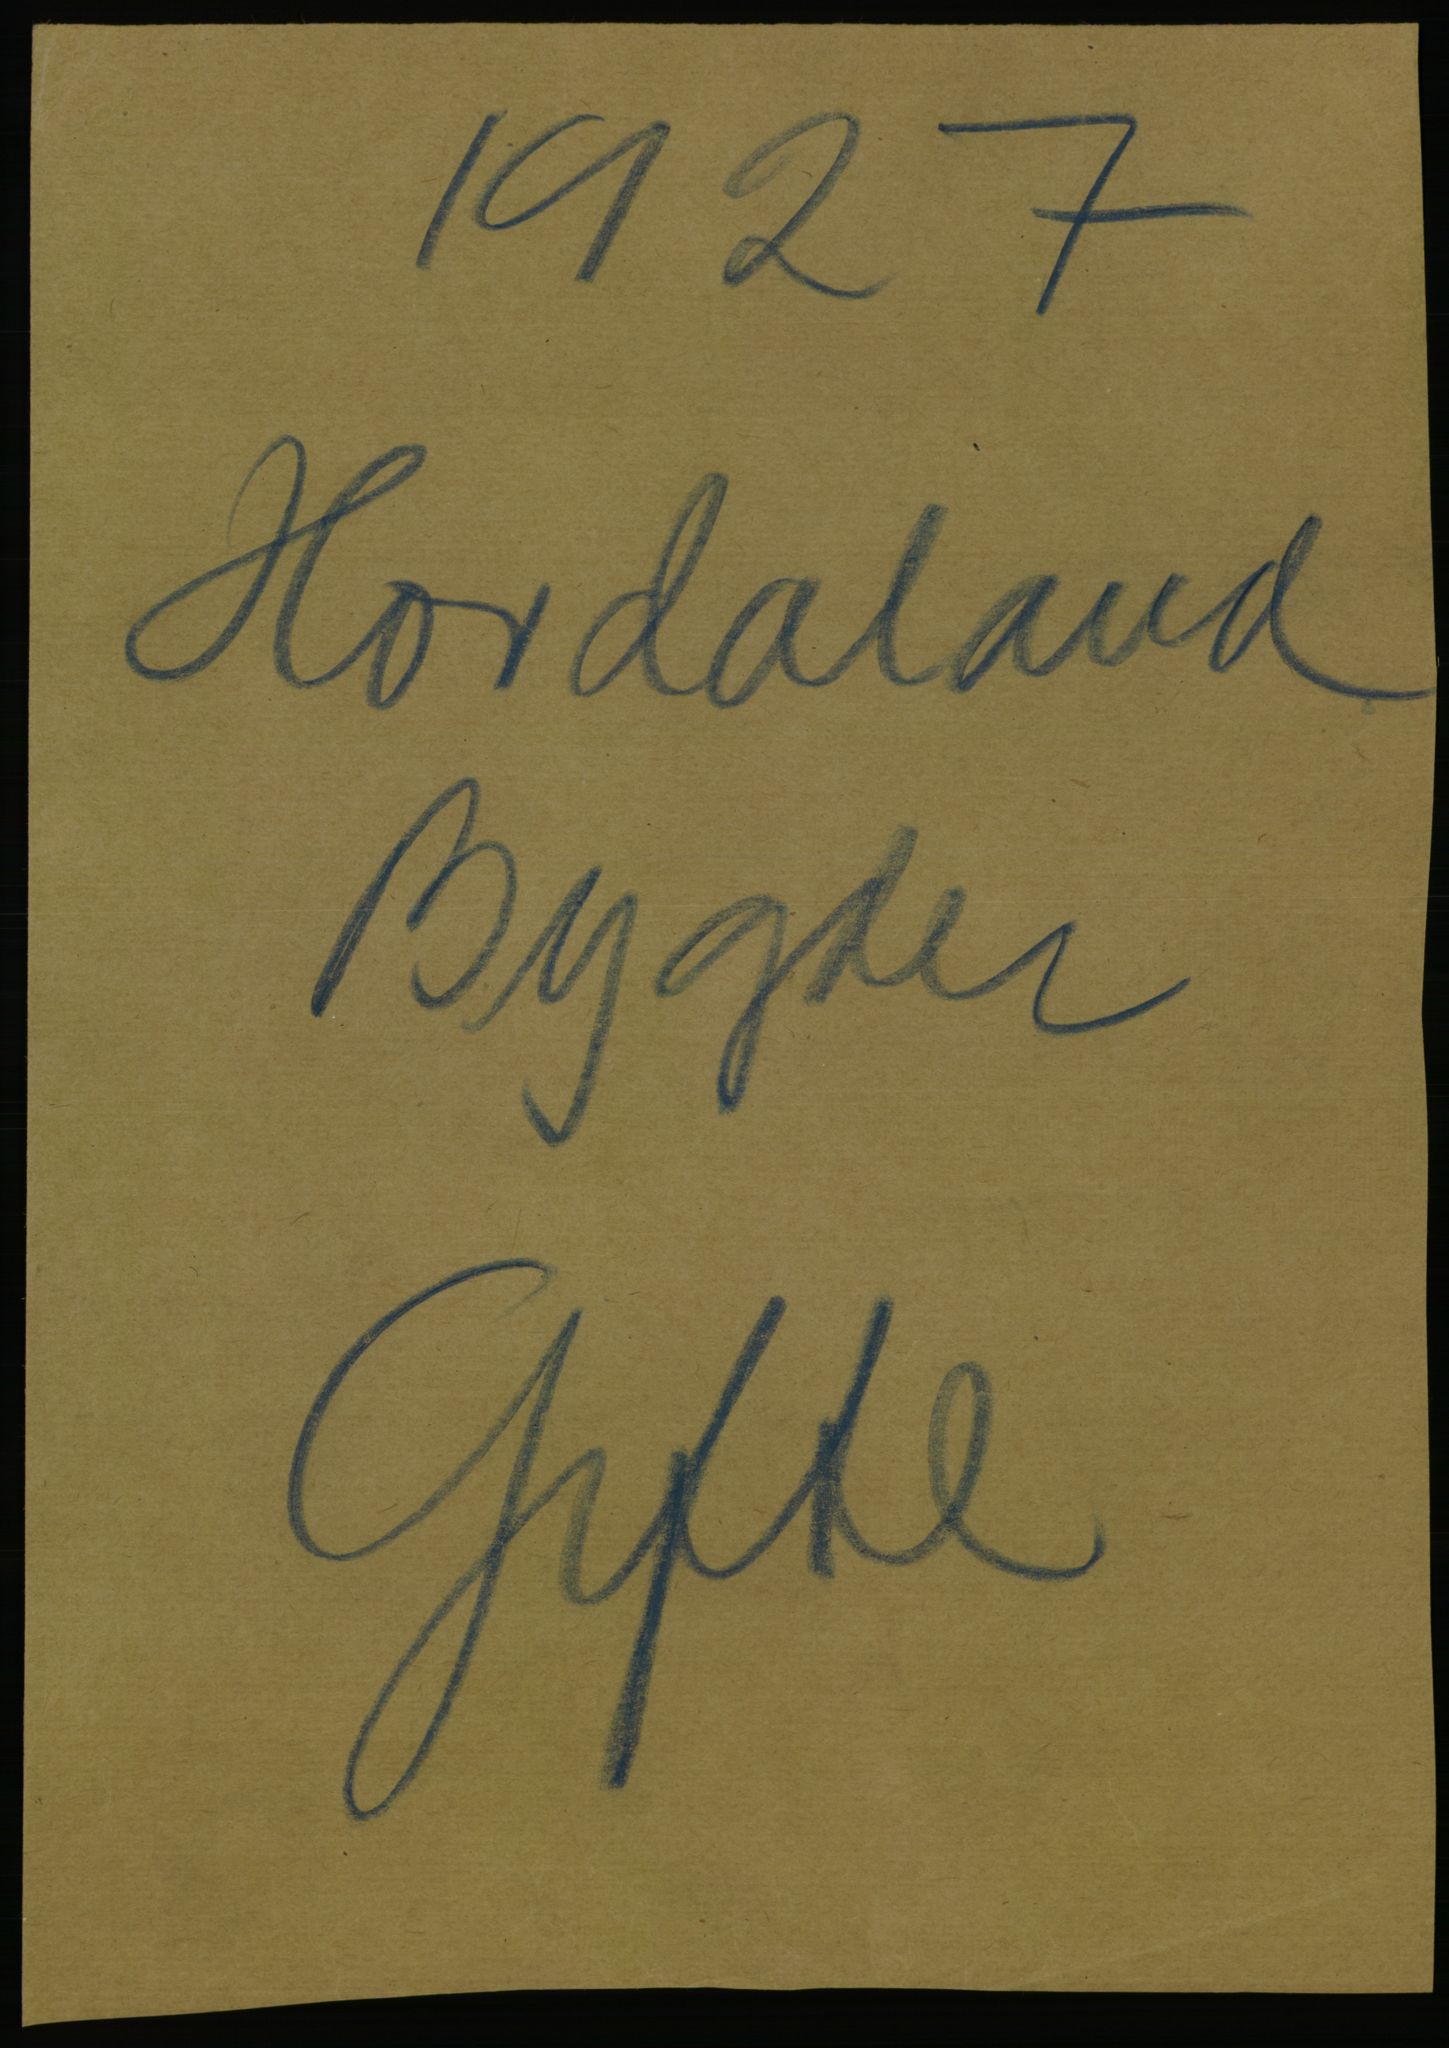 1927
Hordaland
Bygder
Gifte